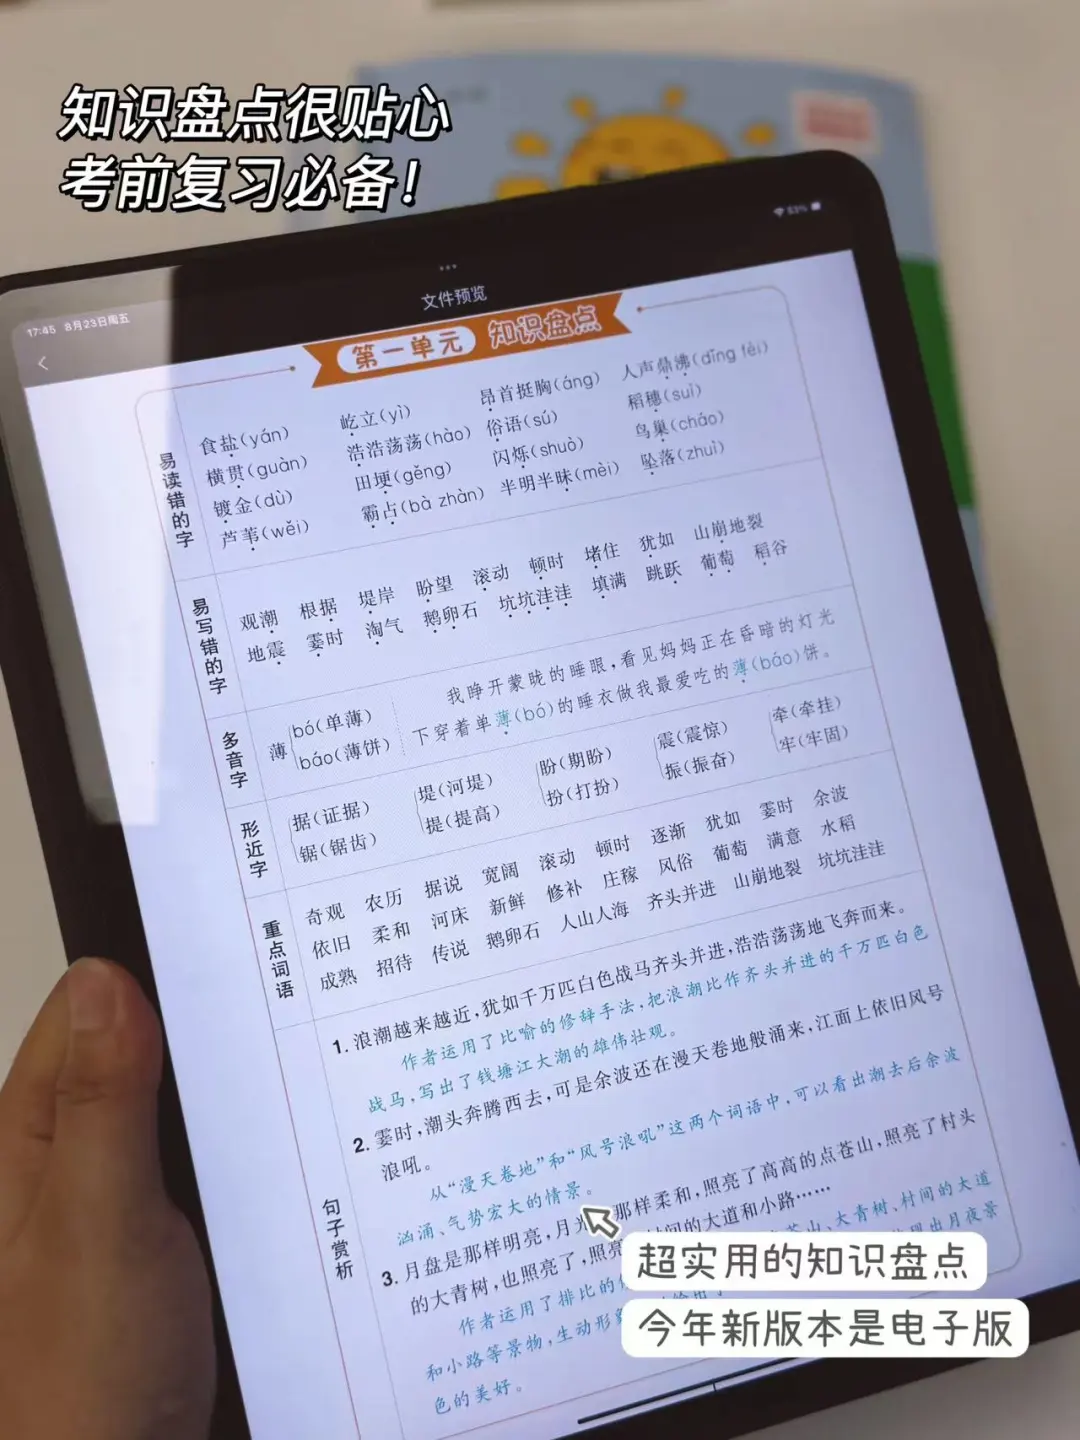 知识盘点很贴心
考前复习必备！
17:45 8月23日周五
53%
文件预览
第一单元 知识盘点
易读错的字
食盐(yán) 屹立(yì) 昂首挺胸(áng) 人声鼎沸(dǐng fèi)
横贯(guàn) 浩浩荡荡(hào) 俗语(sú) 稻穗(suì)
镀金(dù) 田埂(gěng) 闪烁(shuò) 鸟巢(cháo)
芦苇(wěi) 霸占(bà zhàn) 半明半昧(mèi) 坠落(zhuì)
易写错的字
观潮 根据 堤岸 盼望 滚动 顿时 堵住 犹如 山崩地裂
地震 霎时 淘气 鹅卵石 坑坑洼洼 填满 跳跃 葡萄 稻谷
多音字
薄
bó(单薄)
báo(薄饼)
我睁开蒙眬的睡眼，看见妈妈正在昏暗的灯光
下穿着单薄(bó)的睡衣做我最爱吃的薄(báo)饼。
形近字
据(证据) 堤(河堤) 盼(期盼) 震(震惊) 牵(牵挂)
锯(锯齿) 提(提高) 扮(打扮) 振(振奋) 牢(牢固)
重点词语
奇观 农历 据说 宽阔 滚动 顿时 逐渐 犹如 霎时 余波
依旧 柔和 河床 新鲜 修补 庄稼 风俗 葡萄 满意 水稻
成熟 招待 传说 鹅卵石 人山人海 齐头并进 山崩地裂 坑坑洼洼
句子赏析
1. 浪潮越来越近，犹如千万匹白色战马齐头并进，浩浩荡荡地飞奔而来。
作者运用了比喻的修辞手法，把浪潮比作齐头并进的千万匹白色
战马，写出了钱塘江大潮的雄伟壮观。
2. 霎时，潮头奔腾西去，可是余波还在漫天卷地般涌来，江面上依旧风号
浪吼。
从“漫天卷地”和“风号浪吼”这两个词语中，可以看出潮去后余波
汹涌、气势宏大的情景。
3. 月盘是那样明亮，月光那样柔和，照亮了高高的点苍山，照亮了村头
的大青树，也照亮了，照亮 村间的大道和小路……
作者运用了排比的 苍山、大青树、村间的大道
和小路等景物，生动形 出月夜景
色的美好。
超实用的知识盘点
今年新版本是电子版